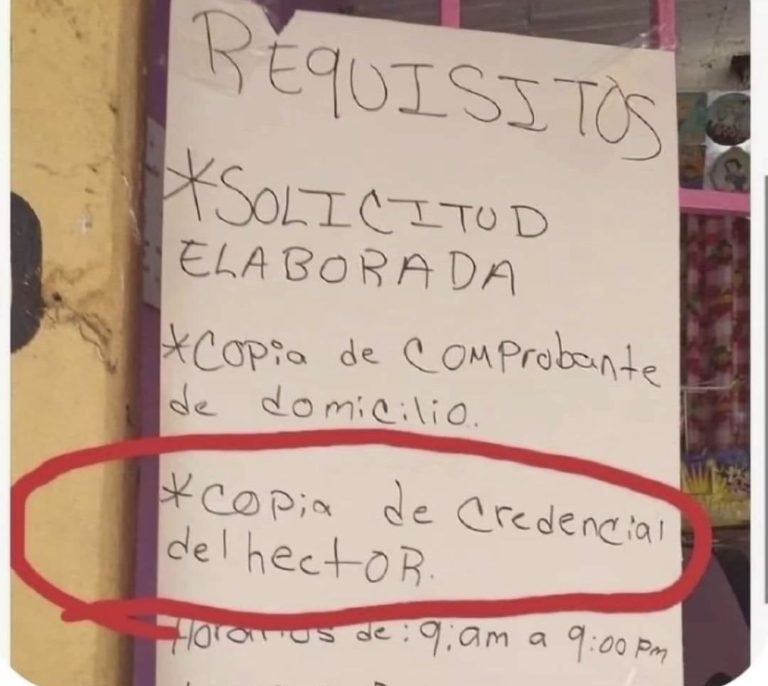 REqUISITOS
*SOLICITUD
ELABORADA
*COPia de COMProbante
de domicilio.
*COPia de Credencial
del hectOR.
Horarios de: 9:am a 9:00 Pm